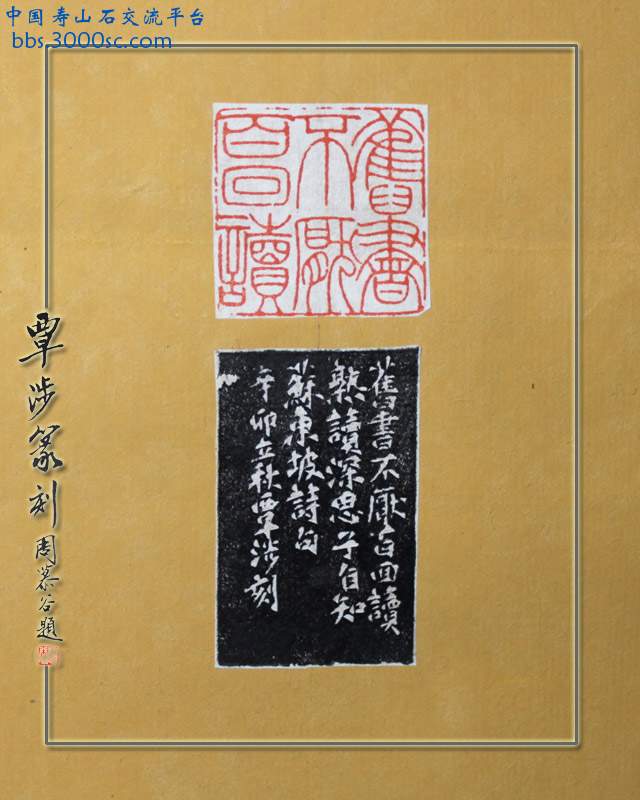 中国寿山石交流平台
bbs.3000sc.com
舊書
不厭
百回讀
舊書不厭百回讀
熟讀深思子自知
蘇東坡詩句
辛卯立秋覃涉刻
覃涉篆刻
周慕谷題